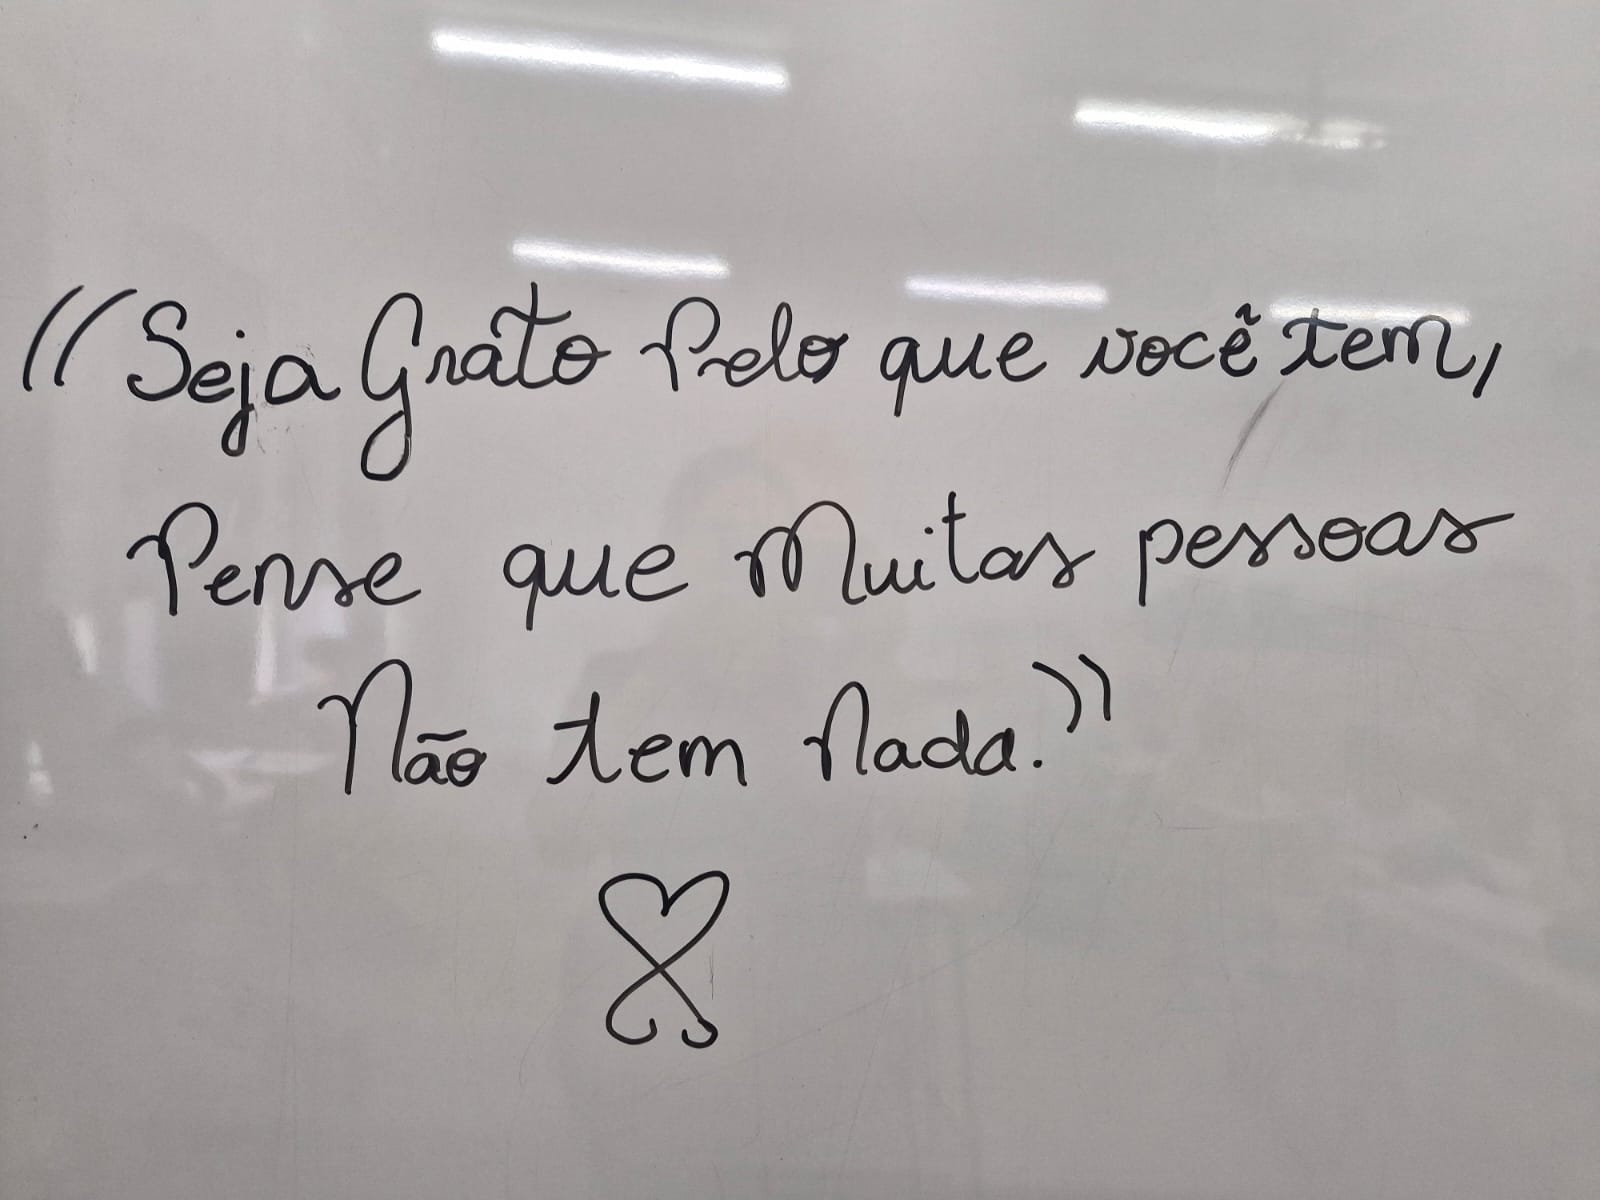 "Seja Grato Pelo que você tem,
Pense que Muitas pessoas
Não tem Nada."